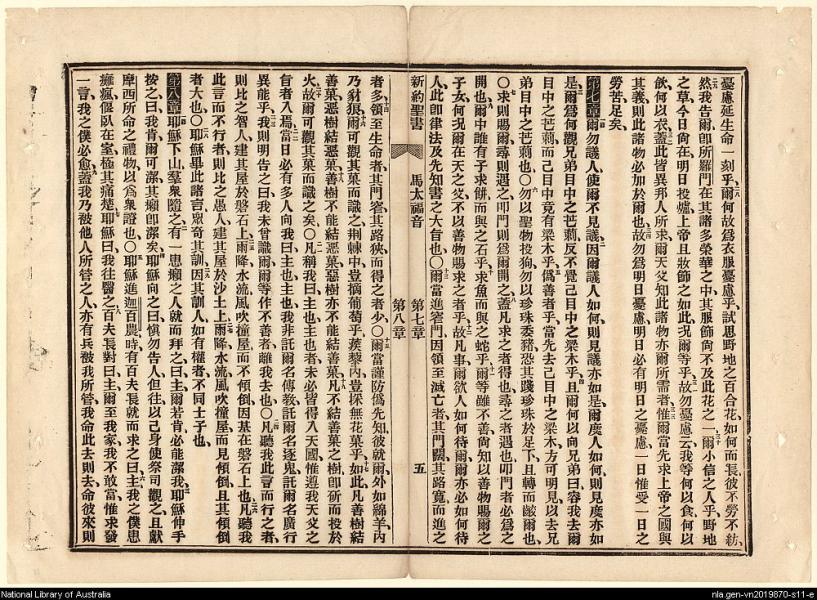 憂慮延生命一刻乎爾何故爲衣服憂慮乎試思野地之百合花如何而長彼不勞不紡
然我告爾即所羅門在其諸多榮華之中其服飾尙不及此花之一爾小信之人乎野地
之草今日尙在明日投爐上帝且妝飾之如此况爾等乎故勿憂慮云我等何以食何以
飲何以衣蓋此皆異邦人所求爾天父知此諸物亦爾所需者惟爾當先求上帝之國與
其義則此諸物必加於爾也故勿爲明日憂慮明日必有明日之憂慮一日惟受一日之
勞苦足矣
第七章爾勿議人使爾不見議因爾議人如何則見議亦如是爾度人如何則見度亦如
是爾爲何觀兄弟目中之芒莿反不覺己目中之梁木乎且爾何以向兄弟曰容我去爾
目中之芒莿而己目中竟有梁木乎僞善者乎當先去己目中之梁木方可明見以去兄
弟目中之芒莿也〇勿以聖物投狗勿以珍珠委豬恐其踐珍珠於足下且轉而齩爾也
〇求則賜爾尋則遇之叩門則爲爾開之蓋凡求之者得也尋之者遇也叩門者必爲之
開也爾中誰有子求餅而與之石乎求魚而與之蛇乎爾等雖不善尙知以善物賜爾之
子女何况爾在天之父不以善物賜求之者乎故凡事爾欲人如何待爾爾亦必如何待
人此即律法及先知書之大旨也〇爾當進窄門因領至滅亡者其門闊其路寬而進之
新約聖書
馬太福音
第七章
第八章
五
者多領至生命者其門窄其路狹而得之者少〇爾當謹防僞先知彼就爾外如綿羊內
乃豺狼爾可觀其菓而識之荆棘中豈摘葡萄乎蒺藜內豈採無花菓乎如此凡善樹結
善菓惡樹結惡菓善樹不能結惡菓惡樹亦不能結善菓凡不結善菓之樹即斫而投於
火故爾可觀其菓而識之矣〇凡稱我曰主也主也者未必皆得入天國惟遵我天父之
旨者入焉當日必有多人向我曰主也主也我非託爾名傳教託爾名逐鬼託爾名廣行
異能乎我則明告之曰我未曾識爾爾等作不善者離我去也〇凡聽我此言而行之者
則比之智人建其屋於磐石上雨降水流風吹撞屋而不傾倒因基在磐石上也凡聽我
此言而不行者則比之愚人建其屋於沙土上雨降水流風吹撞屋而見傾倒且其傾倒
者大也〇耶穌畢此諸言衆奇其訓因其訓人如有權者不同士子也
第八章耶穌下山羣衆隨之有一患癩之人就而拜之曰主爾若肯必能潔我耶穌伸手
按之曰我肯爾可潔其癩即潔矣耶穌向之曰愼勿告人但往以己身使祭司觀之且獻
摩西所命之禮物以爲衆證也〇耶穌進迦百農時有百夫長就而求之曰主我之僕患
癱瘋偃臥在室極其痛楚耶穌曰我往醫之百夫長對曰主爾至我家我不敢當惟求發
一言我之僕必愈蓋我乃被他人所管之人亦有兵被我所管我命此去則去命彼來則
National Library of Australia
nla.gen-vn2019870-s11-e